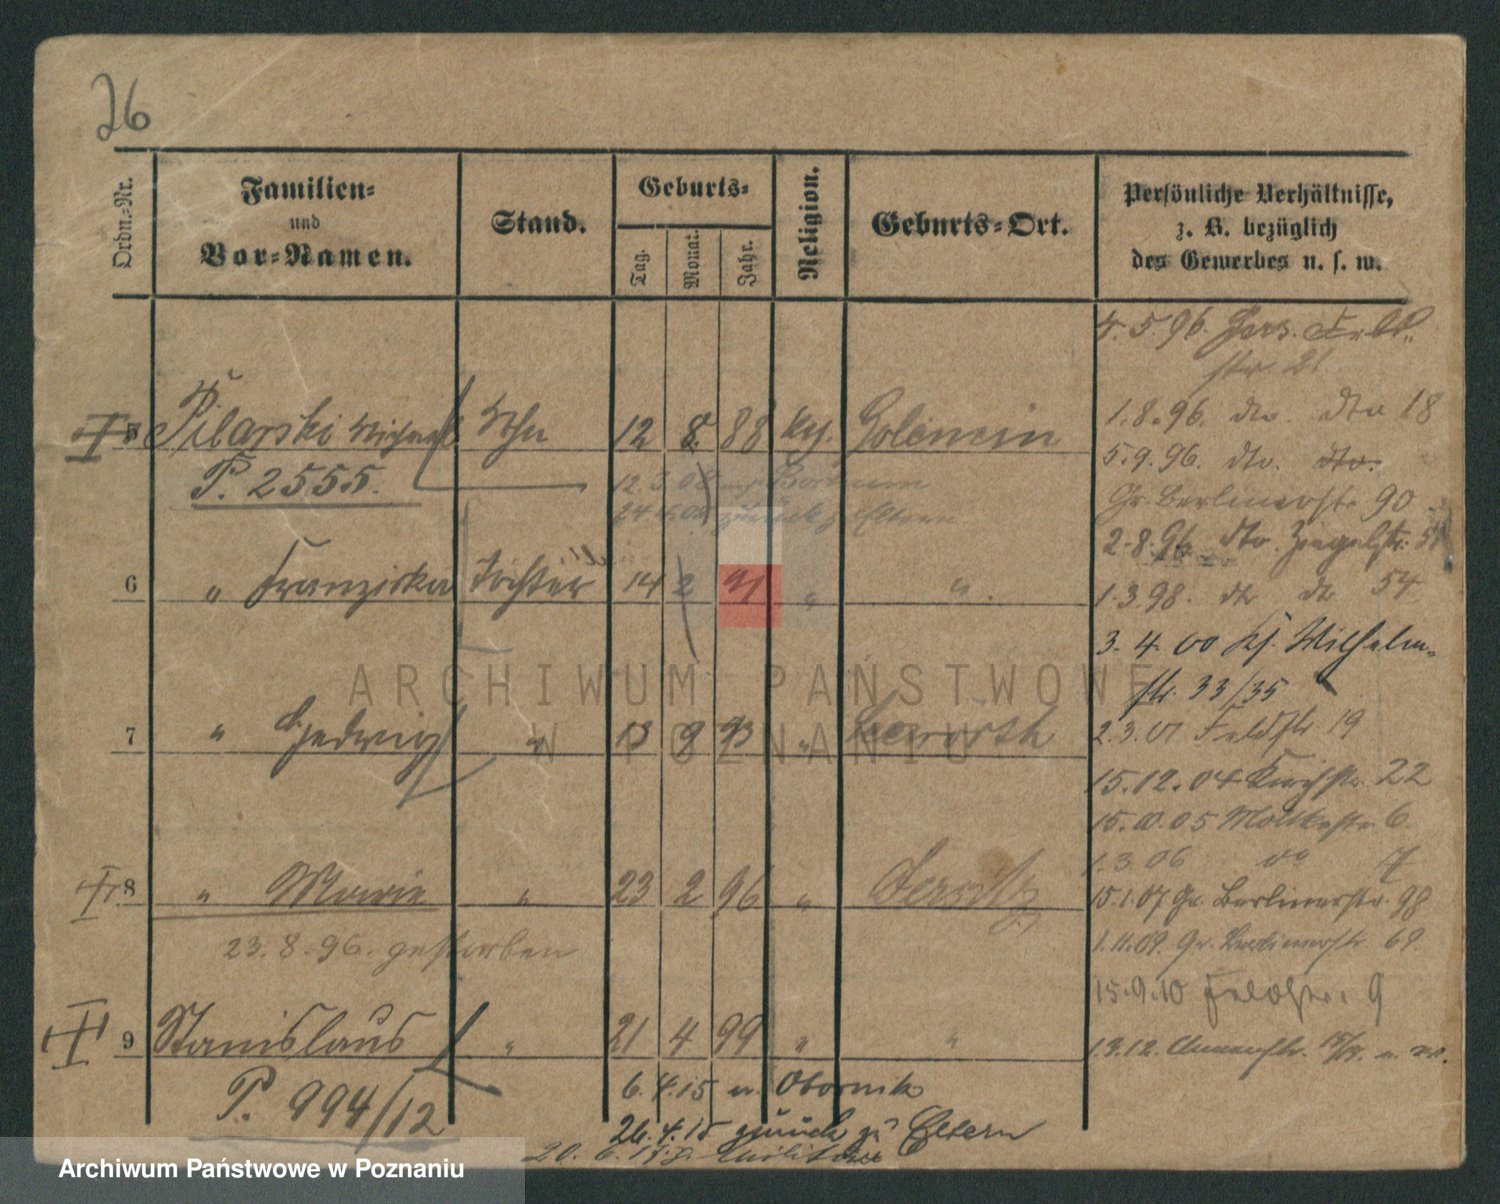 26
Ordn.-Nr.
Familien-
und
Vor-Namen.
Stand.
Geburts-
Tag.
Monat.
Jahr.
Religion.
Geburts-Ort.
Persönliche Verhältnisse,
z. B. bezüglich
des Gewerbes u. s. w.
4.5.96. Jers. Feld-
str. 21
1.8.96. dto. dto 18
5 Pilarski Michael Sohn 12 8. 88 kath. Golencin
5.9.96. dto. dto.
P. 2555.
12.3.08 Borkum
Gr. Berlinerstr. 90
zurück z. Eltern
2.8.96 dto. Ziegelstr.
6 " Franziska Tochter 14 2 91 " "
1.3.98. dto dto 54
3.4.00 Ks. Wilhelm-
str. 33/35
7 " Hedwig " 13 9 93 "
2.3.01 Feldstr 19
15.12.04 Kirchstr. 22
05 Moltkestr 6.
1.3.06 do 7
8 " Marie " 23 2 96 " Jersitz
15.1.07 Gr. Berlinerstr. 98
23.8.96. gestorben
1.11.09. Gr. Berlinerstr. 69
15.9.10 Feldstr. 9
9 Stanislaus " 21 4 99 " "
1.3.12. Annenstr.
P. 994/12
6.4.15 n. Obornik
26.4.15 zurück zu Eltern
20.6.17 z. Militär
ARCHIWUM PAŃSTWOWE
W POZNANIU
Archiwum Państwowe w Poznaniu